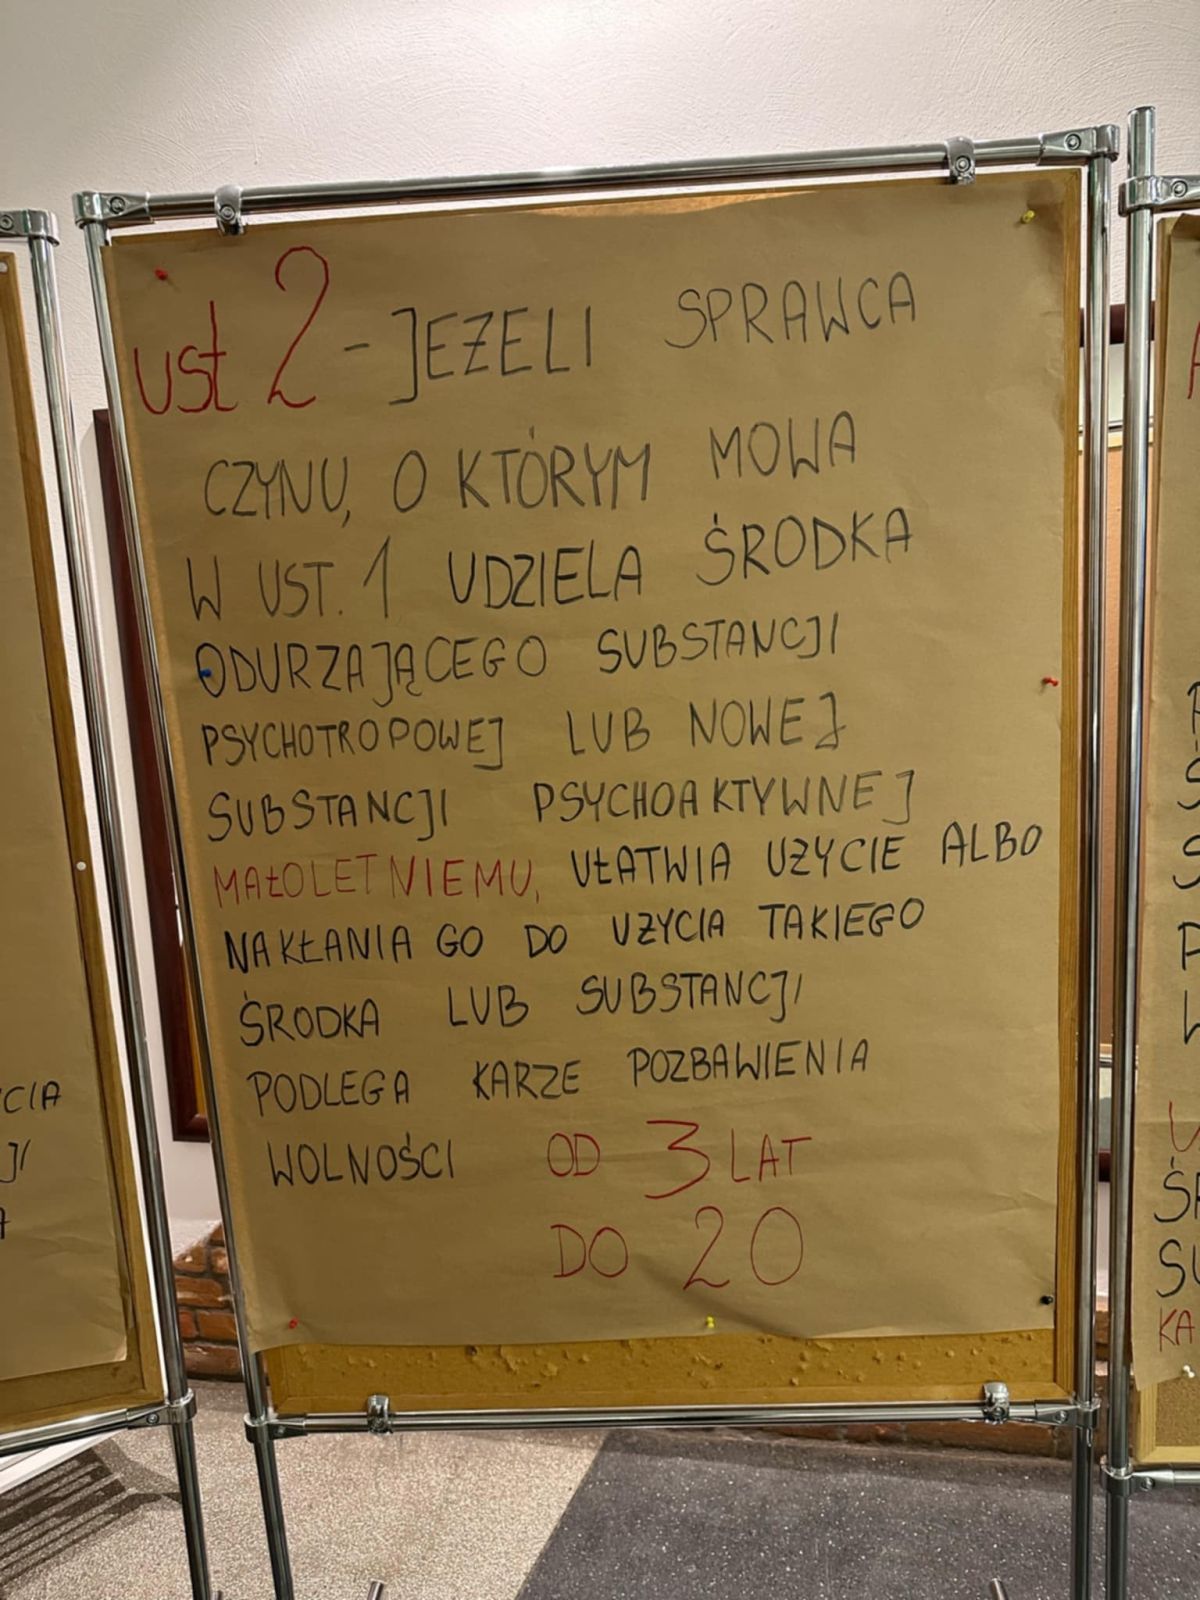 ust 2 - JEŻELI SPRAWCA
CZYNU, O KTÓRYM MOWA
W UST. 1 UDZIELA ŚRODKA
ODURZAJĄCEGO SUBSTANCJI
PSYCHOTROPOWEJ LUB NOWEJ
SUBSTANCJI PSYCHOAKTYWNEJ
MAŁOLETNIEMU, UŁATWIA UŻYCIE ALBO
NAKŁANIA GO DO UŻYCIA TAKIEGO
ŚRODKA LUB SUBSTANCJI
PODLEGA KARZE POZBAWIENIA
WOLNOŚCI OD 3 LAT
DO 20